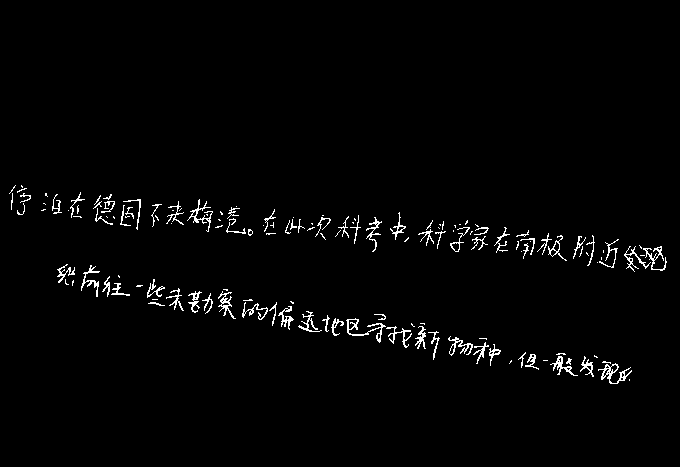 停泊在德国不来梅港。在此次科考中,科学家在南极附近发现
织前往一些未勘察的偏远地区寻找新物种,但一般发现的